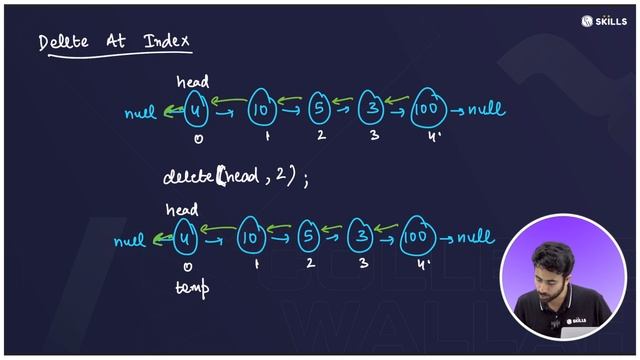 SKILLS
Delete At Index
head
null 4 → 10 → 5 → 3 → 100 → null
0 1 2 3 4
delete(head, 2);
head
null 4 → 10 → 5 → 3 → 100 → null
0 1 2 3 4
temp
SKILLS
WALLAH